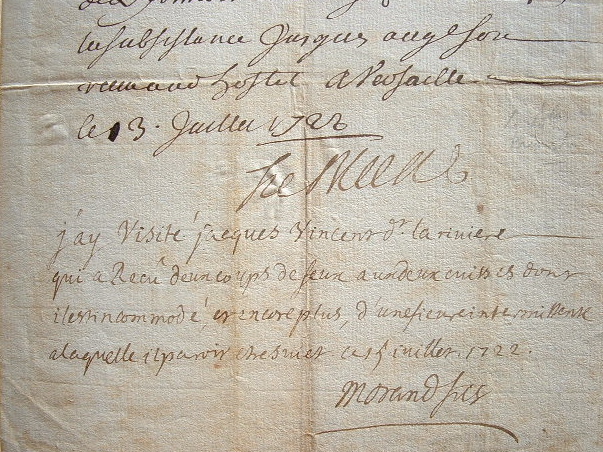 la subsistance jusques au
hostel A Versaille
le 13. Juillet 1722
j'ay Visité jacques Vincent dt. lariviere
qui a Recu deux coups de feux aux deux cuisses dont
il est incommodé, et encore plus, d'une fievre intermittente
a laquelle il paroit estre sujet ce 15 juillet. 1722.
Morand fils